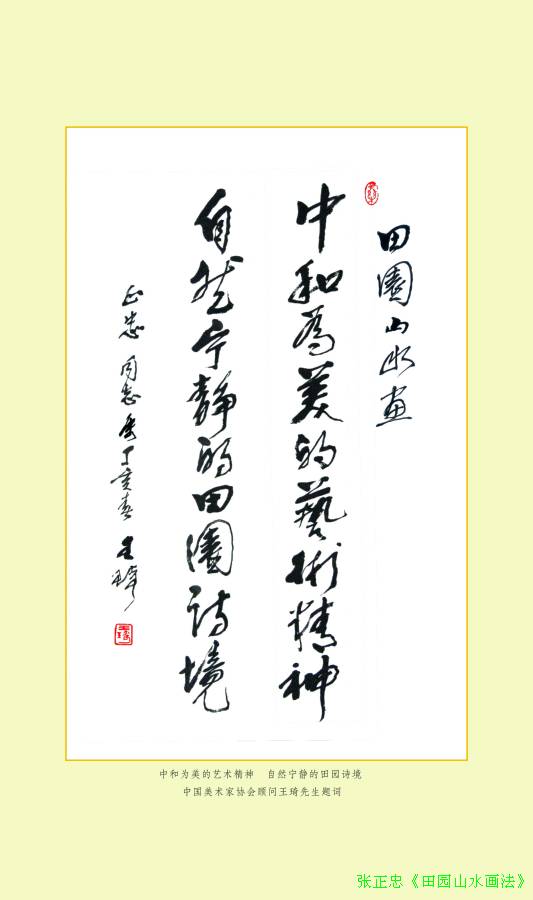 田園山水画
中和為美的藝術精神
自然宁静的田園诗境
正忠同志
丁亥春 王琦
王琦
中和为美的艺术精神 自然宁静的田园诗境
中国美术家协会顾问王琦先生题词
张正忠《田园山水画法》